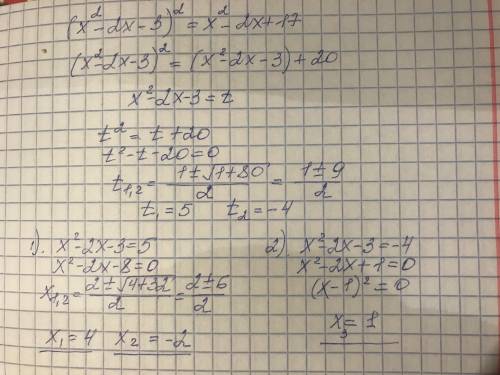 (x²-2x-3)² = x²-2x+17
(x²-2x-3)² = (x²-2x-3)+20
x²-2x-3=t
t² = t+20
t²-t-20=0
t₁,₂ = (1±√(1+80))/2 = (1±9)/2
t₁=5 t₂=-4
1). x²-2x-3=5
x²-2x-8=0
x₁,₂ = (2±√(4+32))/2 = (2±6)/2
x₁=4 x₂=-2
2). x²-2x-3=-4
x²-2x+1=0
(x-1)²=0
x₃=1